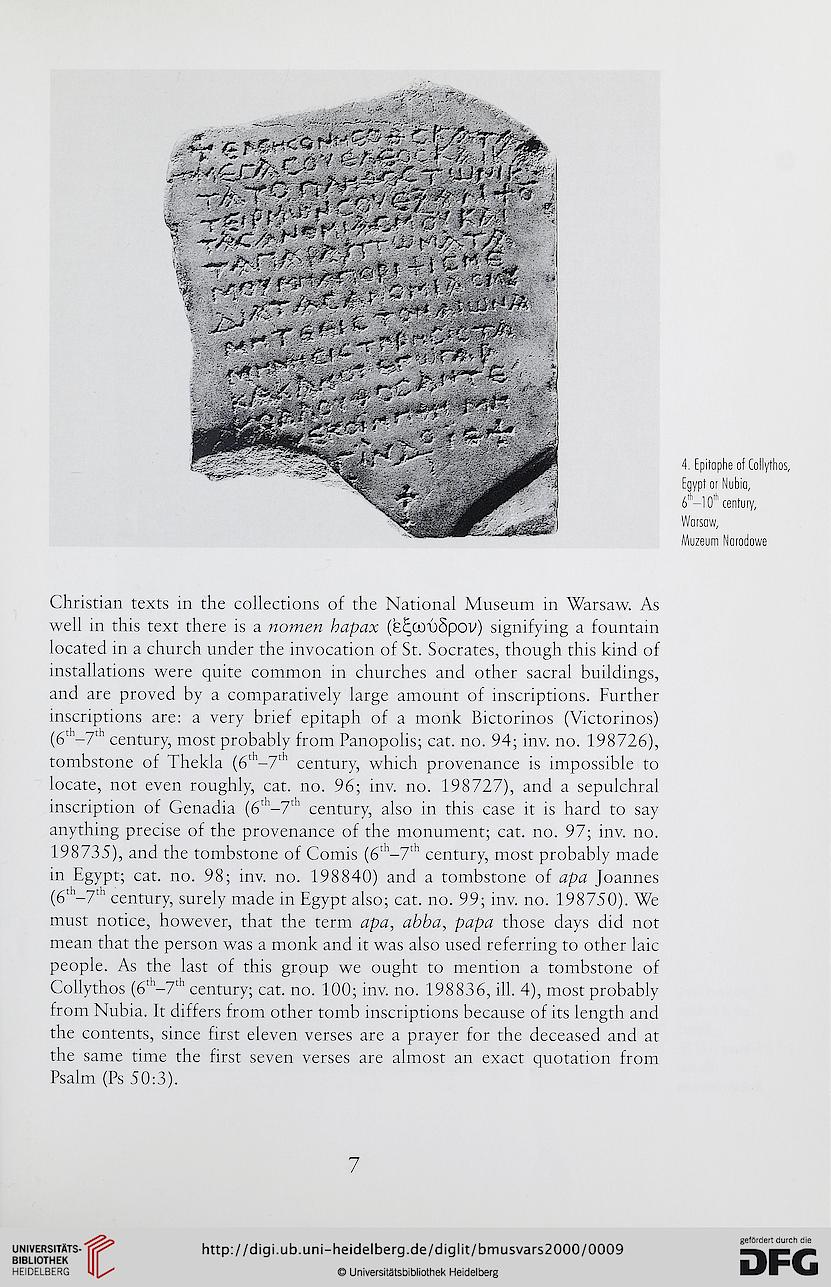 4. Epitaphe of Collythos,
Egypt or Nubia,
6th–10th century,
Warsaw,
Muzeum Narodowe
Christian texts in the collections of the National Museum in Warsaw. As
well in this text there is a nomen hapax (ἐξωύδρον) signifying a fountain
located in a church under the invocation of St. Socrates, though this kind of
installations were quite common in churches and other sacral buildings,
and are proved by a comparatively large amount of inscriptions. Further
inscriptions are: a very brief epitaph of a monk Bictorinos (Victorinos)
(6th–7th century, most probably from Panopolis; cat. no. 94; inv. no. 198726),
tombstone of Thekla (6th–7th century, which provenance is impossible to
locate, not even roughly, cat. no. 96; inv. no. 198727), and a sepulchral
inscription of Genadia (6th–7th century, also in this case it is hard to say
anything precise of the provenance of the monument; cat. no. 97; inv. no.
198735), and the tombstone of Comis (6th–7th century, most probably made
in Egypt; cat. no. 98; inv. no. 198840) and a tombstone of apa Joannes
(6th–7th century, surely made in Egypt also; cat. no. 99; inv. no. 198750). We
must notice, however, that the term apa, abba, papa those days did not
mean that the person was a monk and it was also used referring to other laic
people. As the last of this group we ought to mention a tombstone of
Collythos (6th–7th century; cat. no. 100; inv. no. 198836, ill. 4), most probably
from Nubia. It differs from other tomb inscriptions because of its length and
the contents, since first eleven verses are a prayer for the deceased and at
the same time the first seven verses are almost an exact quotation from
Psalm (Ps 50:3).
7
UNIVERSITÄTS-
BIBLIOTHEK
HEIDELBERG
http://digi.ub.uni-heidelberg.de/diglit/bmusvars2000/0009
© Universitätsbibliothek Heidelberg
gefördert durch die
DFG